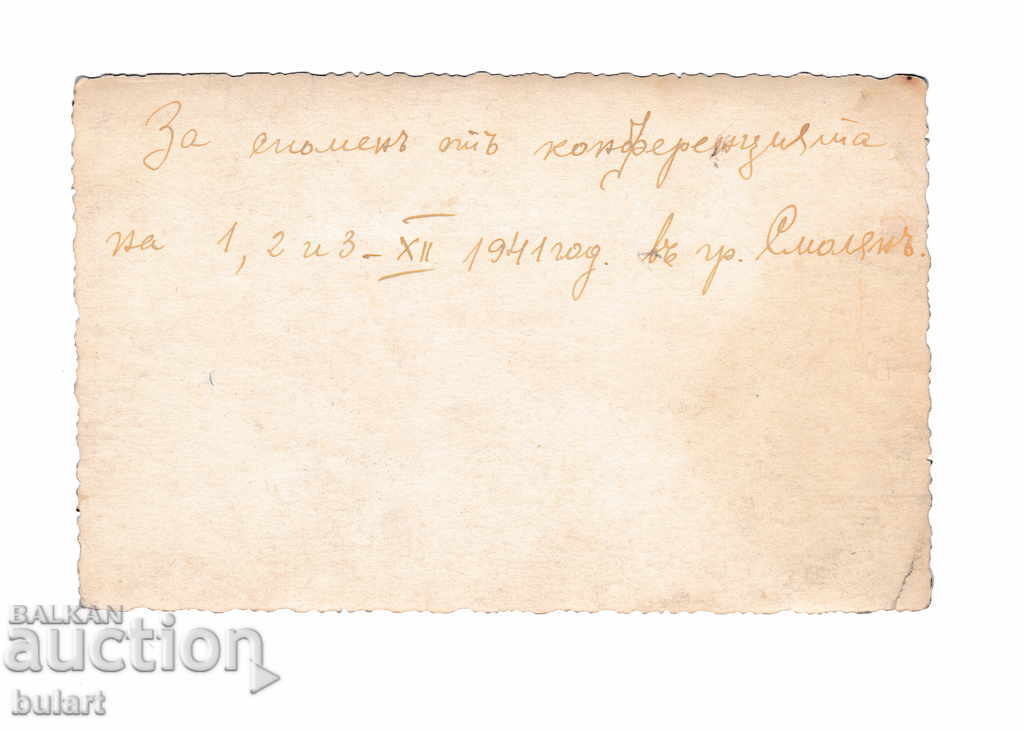 За споменъ отъ конференцията
на 1, 2 и 3 - XII 1941 год. въ гр. Смолянъ.
BALKAN
auction
bulart